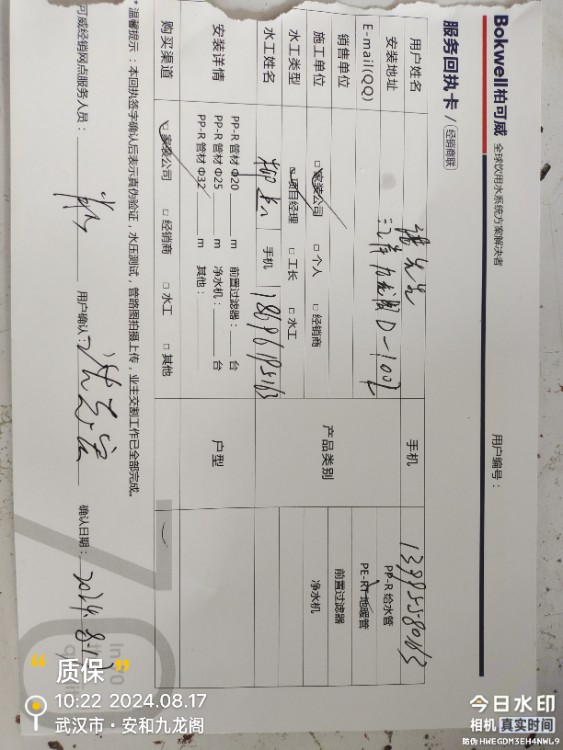 Bokwell柏可威 全球饮用水系统方案解决者
用户编号：
服务回执卡 / 经销商联
用户姓名
手机
安装地址 D-1002
E-mail(QQ)
销售单位
产品类别
PP-R 给水管
PE-RT地暖管
前置过滤器
净水机
施工单位 □家装公司 □个人 □经销商
水工类型 □项目经理 □工长 □水工
水工姓名 手机
安装详情
PP-R 管材 Φ20 m 前置过滤器： 台
PP-R 管材 Φ25 m 净水机： 台
PP-R 管材 Φ32 m 其他：
户型
购买渠道 □家装公司 □经销商 □水工 □其他
*温馨提示：本回执签字确认后表示真伪验证，水压测试，管路图拍摄上传，业主交割工作已全部完成。
可威经销网点服务人员： 用户确认： 确认日期：2024.8.17
“质保”
10:22 2024.08.17
武汉市·安和九龙阁
今日水印
相机 真实时间
防伪 HWEGDM3EH4NWL9